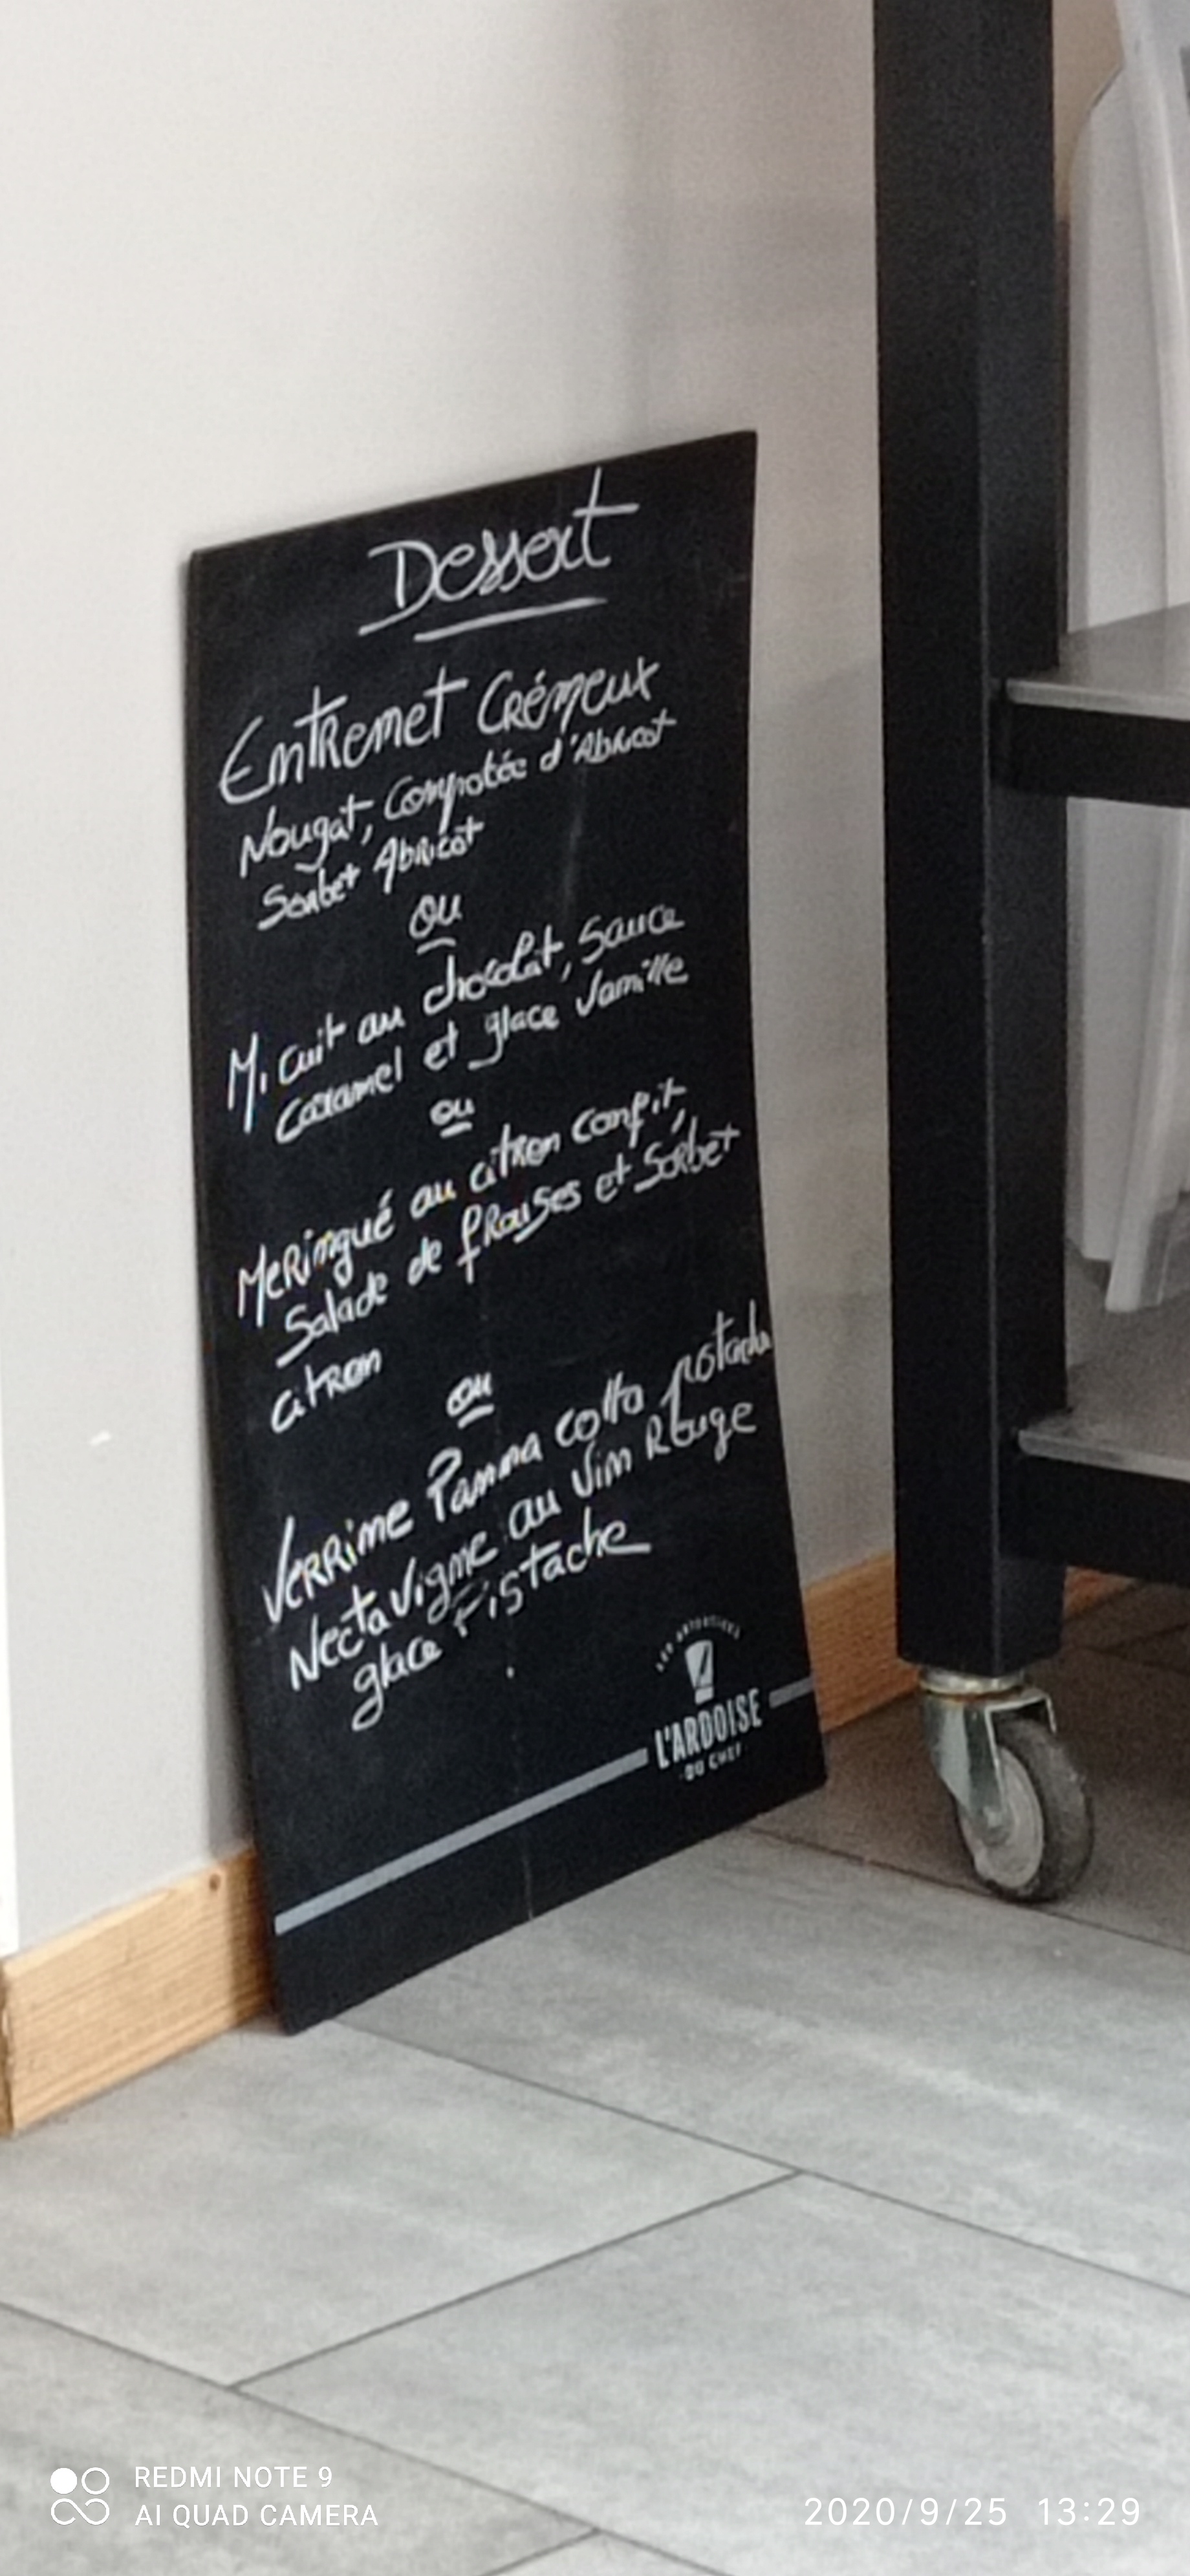 Dessert
Entremet Crémeux
Nougat, Compotée d'Abricot
Sorbet Abricot
ou
Mi cuit au chocolat, Sauce
Caramel et glace Vanille
ou
Meringué au citron confit,
Salade de fraises et Sorbet
citron
ou
Verrine Panna cotta pistache
Necta Vigne au Vin Rouge
glace Pistache
L'ARDOISE
DU CHEF
REDMI NOTE 9
AI QUAD CAMERA
2020/9/25 13:29